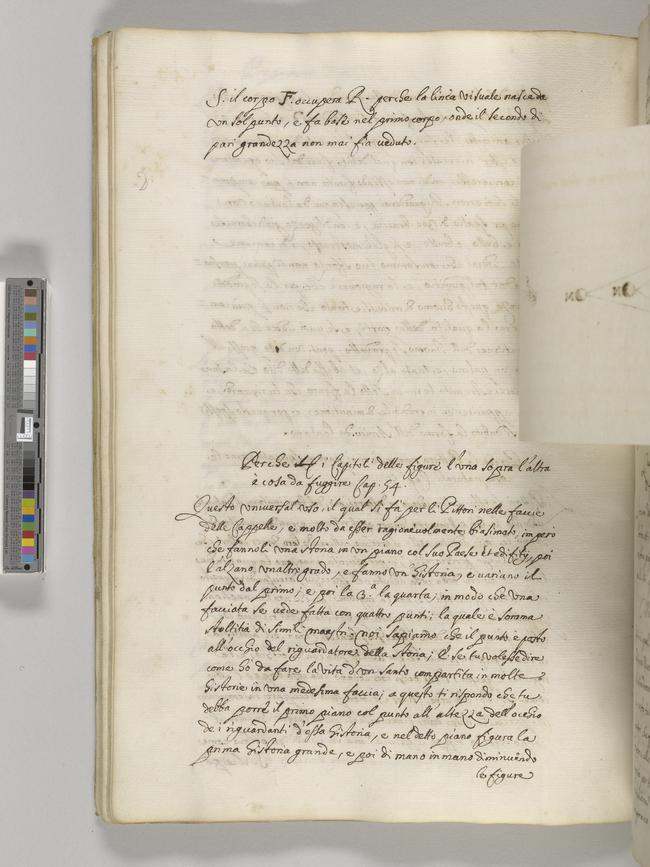 S. il corpo F. occupera R. perche la linea visuale nasce da
un sol punto, e fa base nel primo corpo, onde il secondo di
pari grandezza non mai fia veduto.
Perche i Capitoli delle figure l'una sopra l'altra
è cosa da fuggire Cap. 54.
Questo universal uso, il qual si fà per li Pittori nelle faccie
delle Cappelle, e molto da esser ragionevolmente biasimato, impero
che fannoli una storia in un piano col suo Paese et edifitij, poi
l'alzano un altro grado, e fanno un' Historia, e variano il
punto dal primo; e poi la 3.ª la quarta; in modo che una
facciata se vede fatta con quattro punti; la quale è somma
stoltitia di simili maestri; noi sapiamo che il punto e posto
all'occhio del riguardatore della storia; E se tu volesse dire
come hò da fare la vita d'un santo compartita in molte
historie in una medesima faccia; a questo ti rispondo che tu
debba porre il primo piano col punto all' altezza dell' occhio
de i riguardanti d'essa historia, e nel detto piano figura la
prima historia grande, e poi di mano in mano diminuendo
le figure